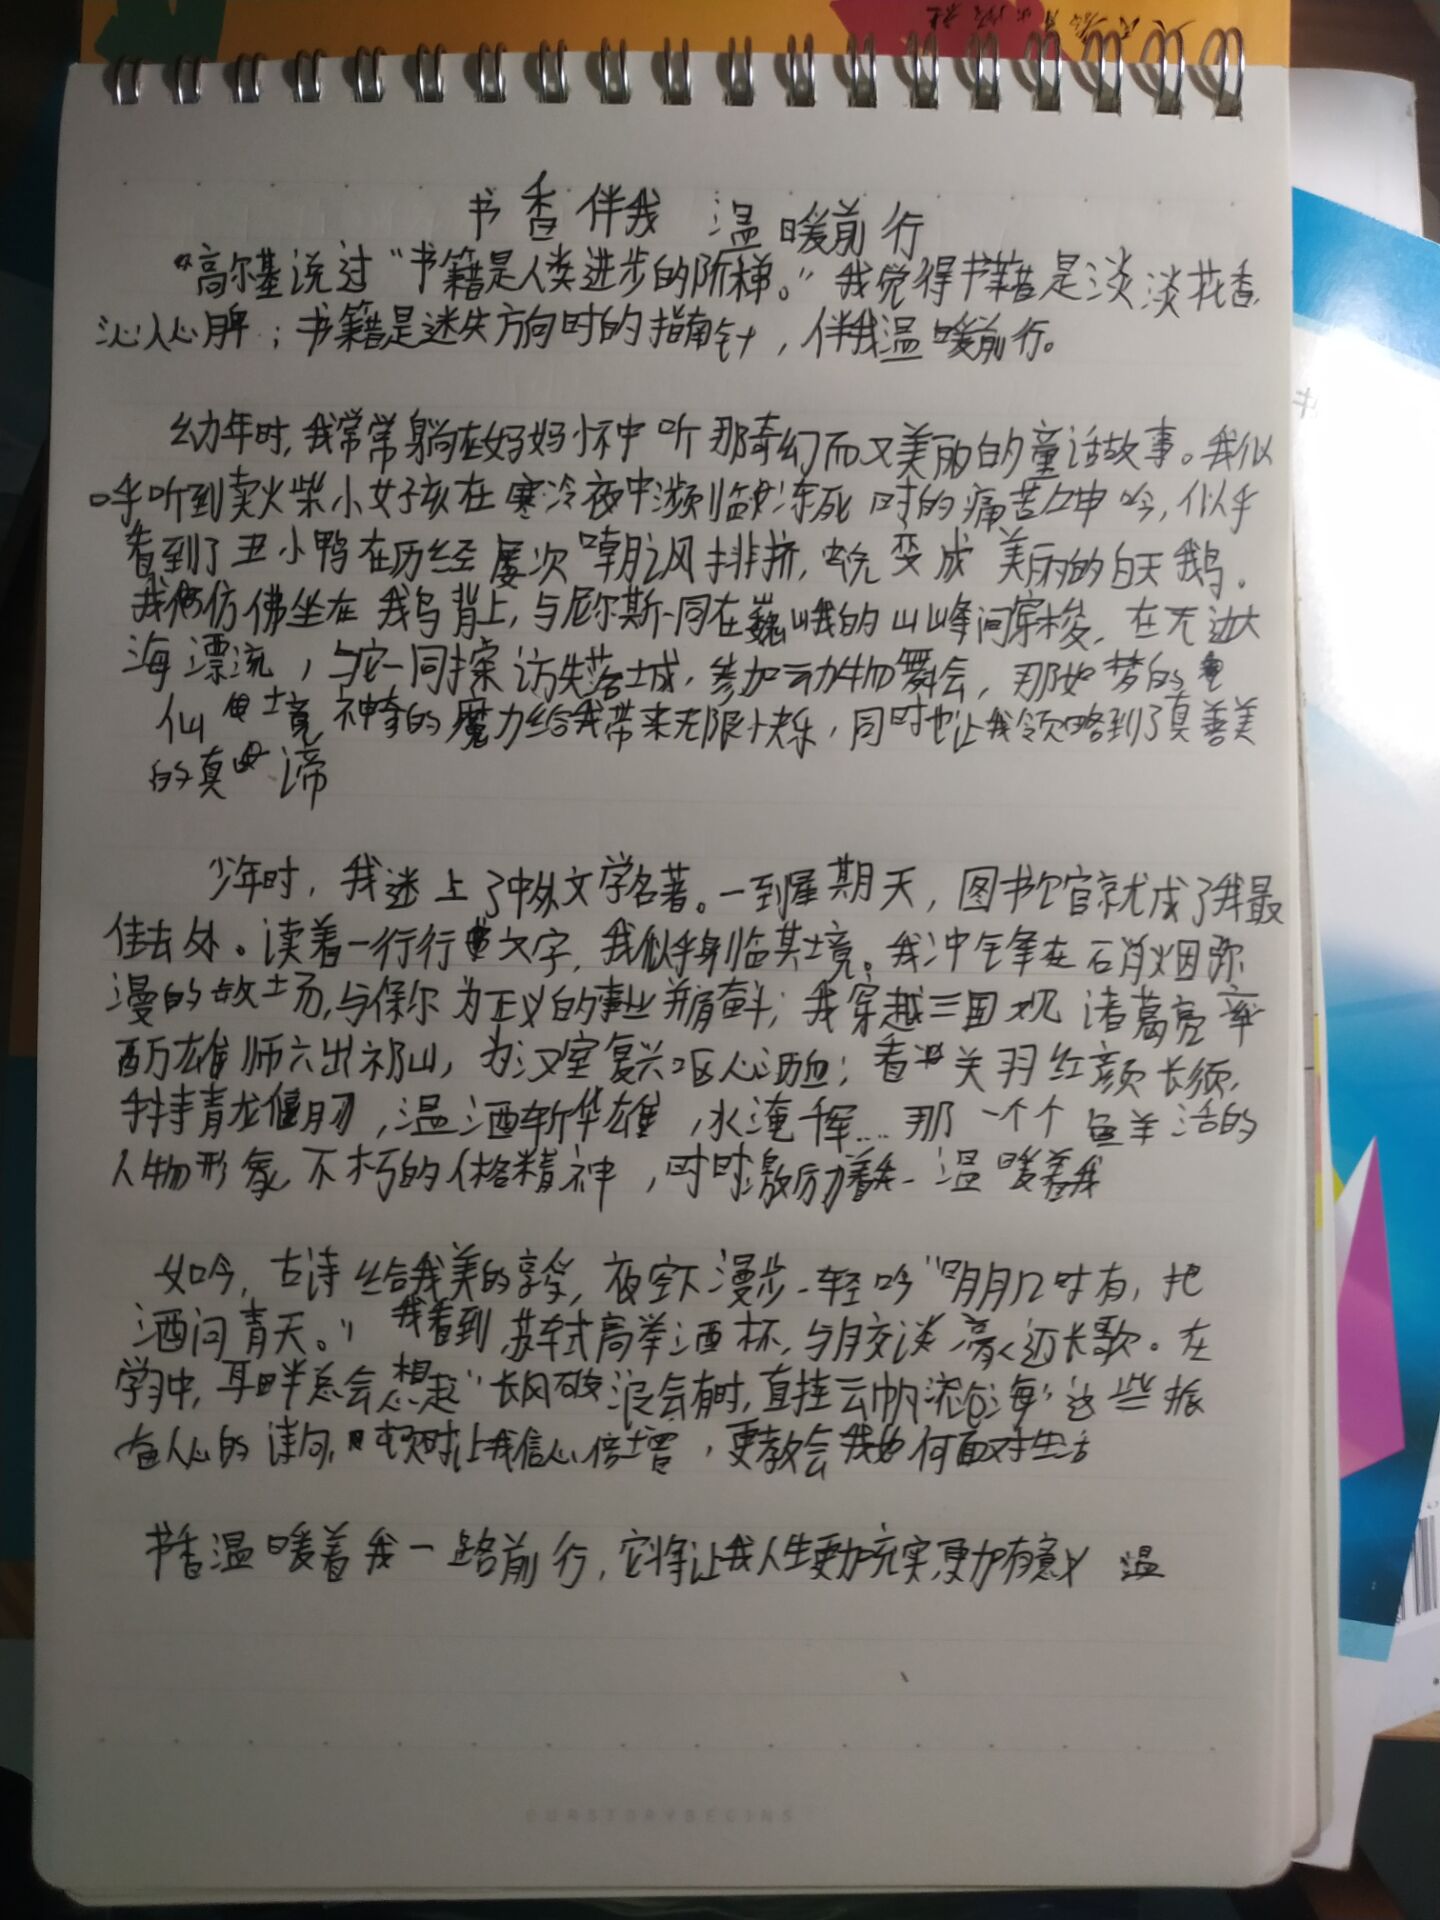 书香伴我 温暖前行
“高尔基说过“书籍是人类进步的阶梯。”我觉得书籍是淡淡花香,
沁人心脾;书籍是迷失方向时的指南针,伴我温暖前行。
幼年时,我常常躺在妈妈怀中听那奇幻而又美丽的童话故事。我似
乎听到卖火柴小女孩在寒冷夜中濒临冻死时的痛苦呻吟,似乎
看到了丑小鸭在历经屡次嘲讽排挤,变成美丽的白天鹅。
我仿佛坐在鹅背上,与尼尔斯一同在巍峨的山峰间穿梭,在无边大
海漂流,与它一同探访失落土城,参加动物舞会,那如梦的
仙境,神奇的魔力给我带来无限快乐,同时也让我领略到了真善美
的真谛
少年时,我迷上了中外文学名著。一到星期天,图书馆就成了我最
佳去处。读着一行行文字,我似乎身临其境。我冲锋在硝烟弥
漫的故场,与保尔为正义的事业并肩奋斗;我穿越三国观诸葛亮率
百万雄师六出祁山,为汉室复兴呕心沥血;看关羽红颜长须,
手持青龙偃月刀,温酒斩华雄,水淹千军....那一个个鱼羊活的
人物形象,不朽的人格精神,时时激励着我、温暖着我
如今,古诗给我美的享受,夜空下漫步、轻吟“明月几时有,把
酒问青天。”我看到苏轼高举酒杯,与月交谈,豪迈长歌。在
学习中,耳畔总会想起“长风破浪会有时,直挂云帆济沧海”这些振
奋人心的诗句,顿时让我信心倍增,更教会我如何面对生活
书香温暖着我一路前行,它将让我人生更加充实,更加有意义 温
OURSTORYBEGINS